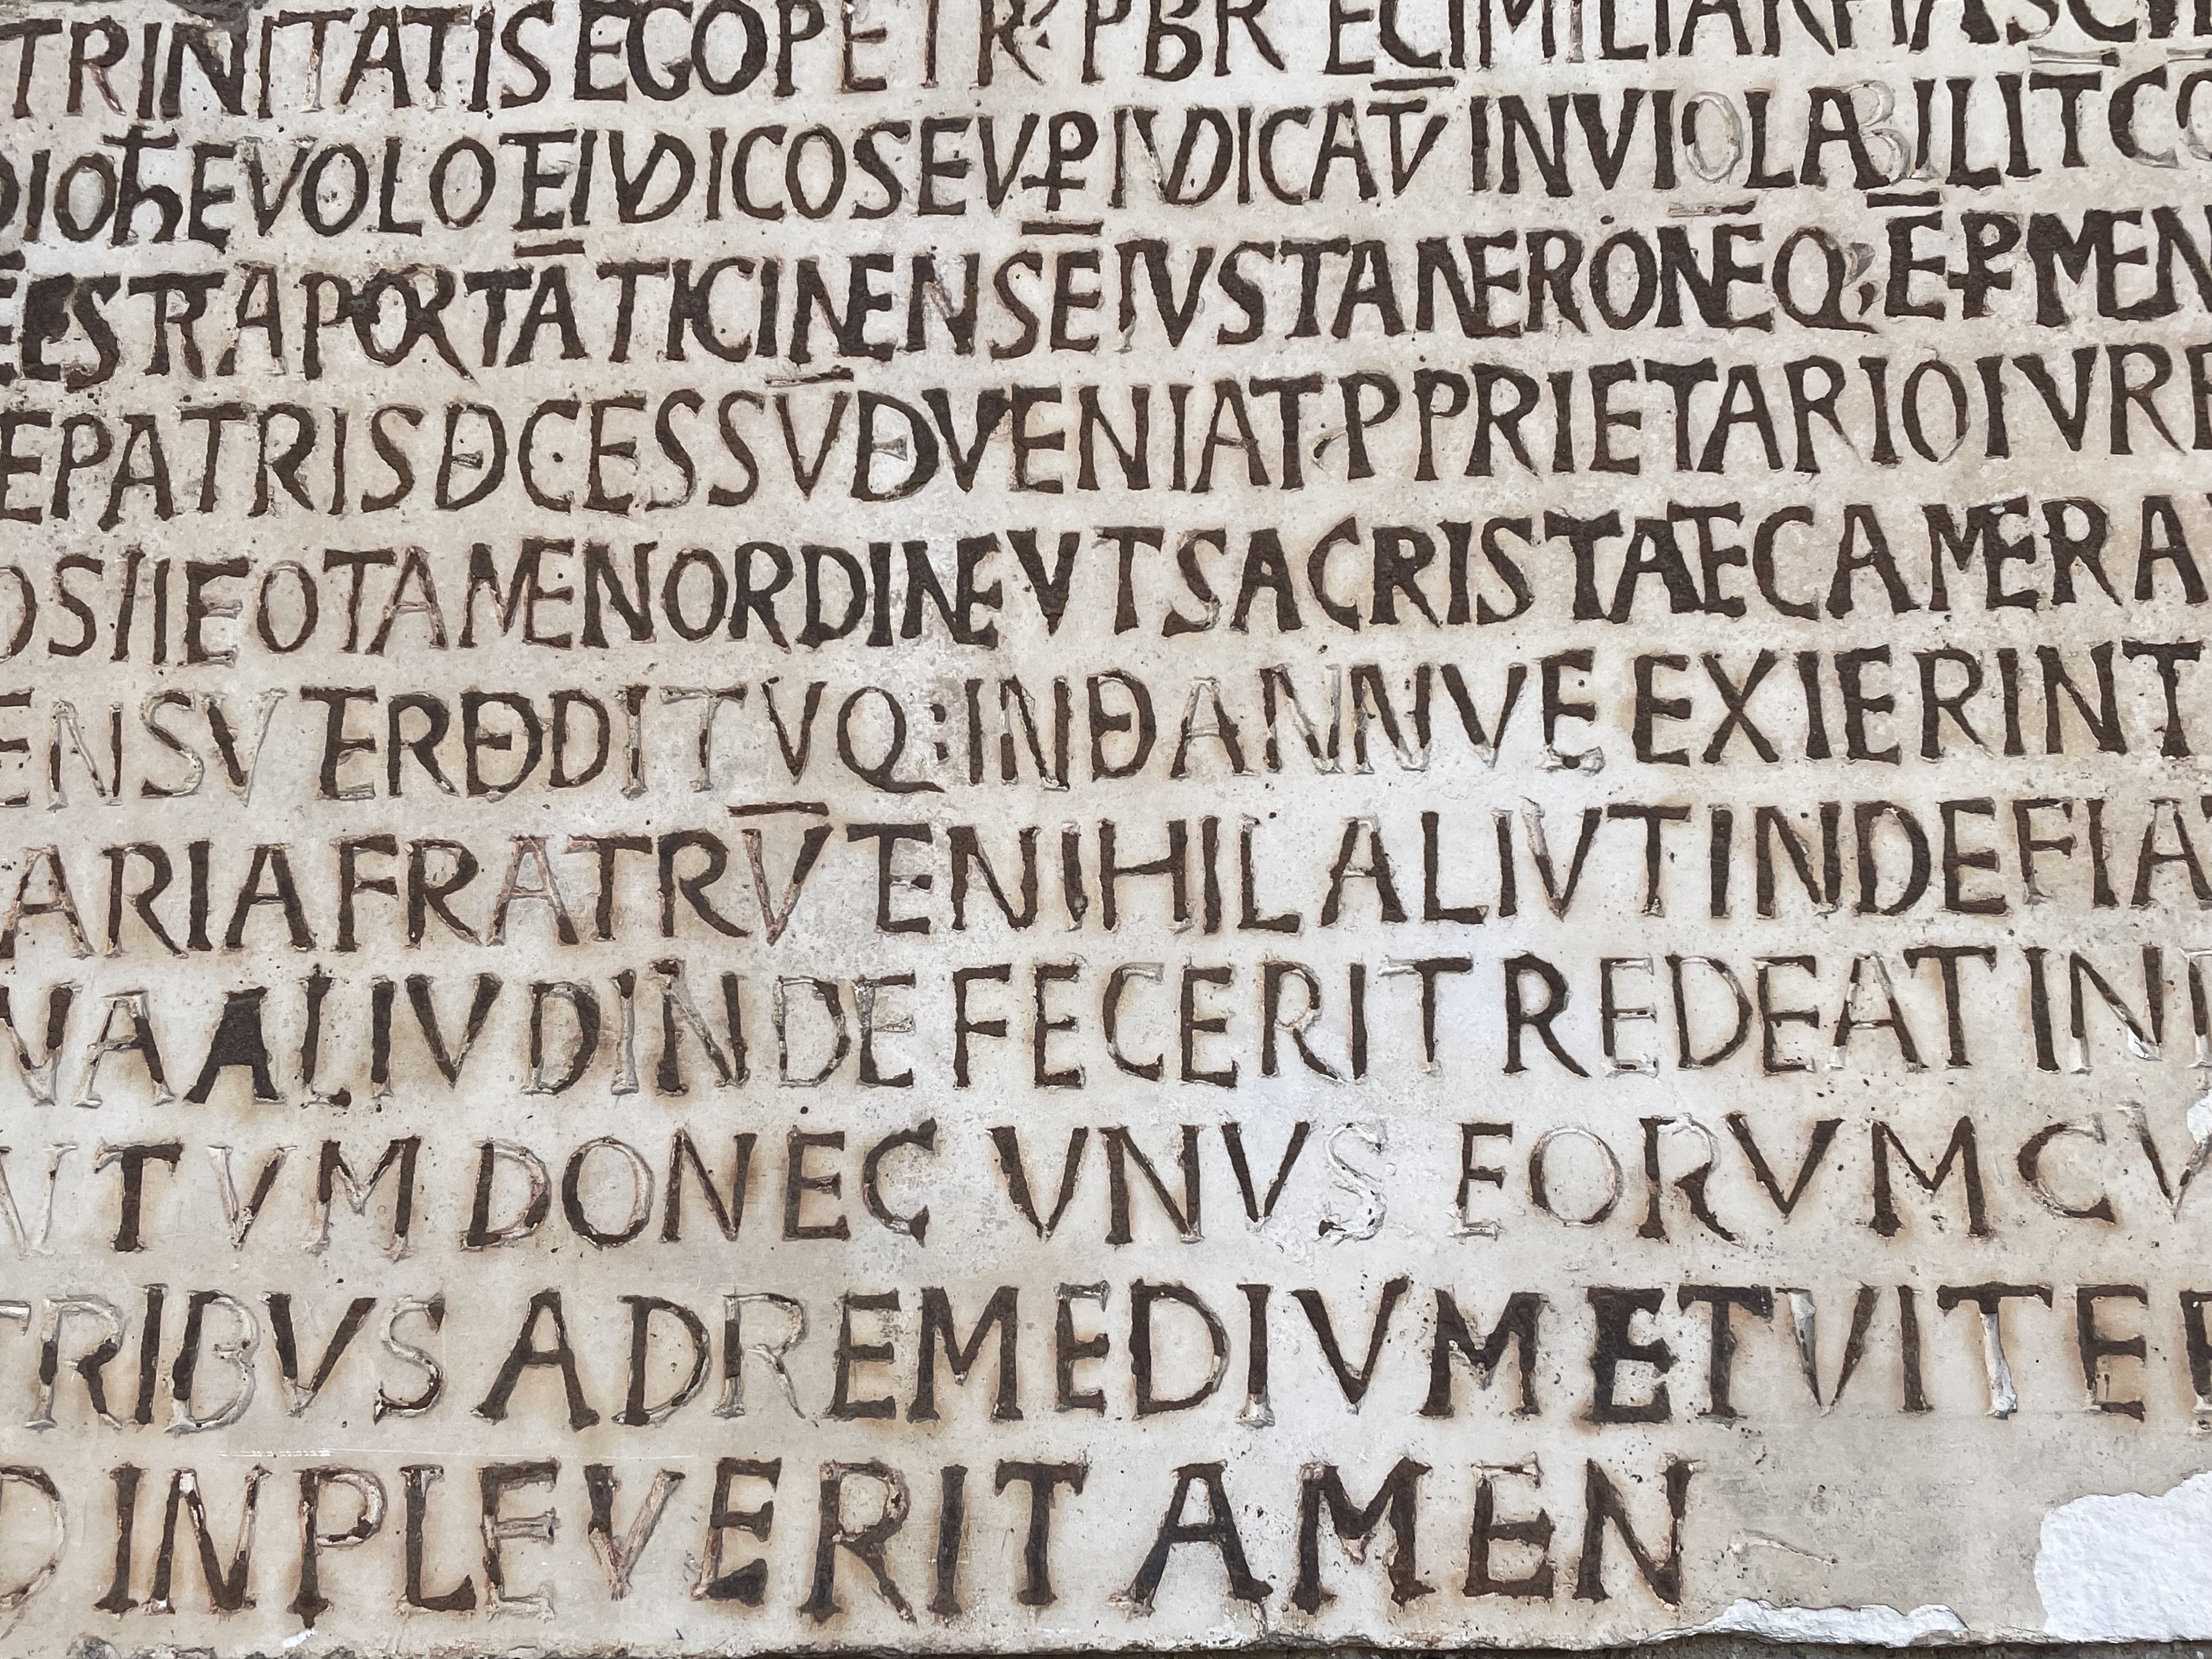 TRINITATIS EGO PETR' PBR ECIMILIARH
DIOħE VOLO E IVDICO SEV P IVDICATŪ INVIOLABILIT
EST RAPORTĀ TICINENSĒ IVSTA NERONĒ Q; Ē P MEN
E PATRIS DCESSV̄ DVENIAT PPRIETARIO IVRE
OS IIEO TAMEN ORDINE VT SACRISTAE CAMERA
ENSV ERDDITVQ: IN D ANNVE EXIERINT
ARIA FRATRV̄ TE NIHIL ALIVT INDE FIA
VA ALIVD INDE FECERIT REDEAT IN
VTVM DONEC VNVS EORVM CV
TRIBVS AD REMEDIVM ET VITE
D INPLEVERIT AMEN